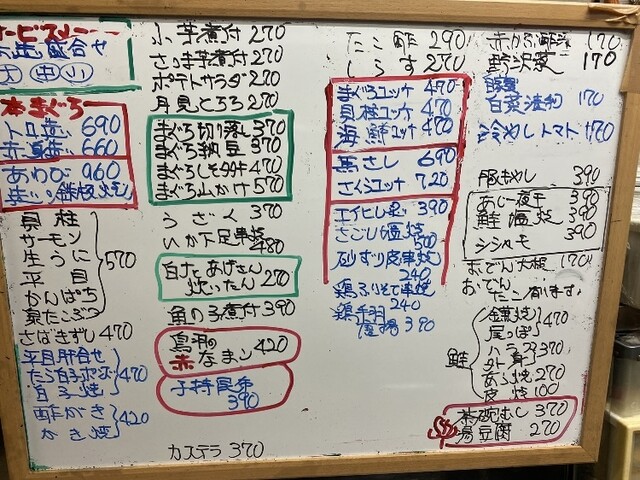 サービスメニュー
お造り盛合せ
大 中 小
本まぐろ
トロ造り 690
赤身造り 660
あわび 960
造り 鉄板やき
貝柱
サーモン
生うに
平目
かんぱち
真たこぶつ
570
さばきずし 470
平目肝合せ
たら白子ポン酢
白子焼
470
酢がき
かき焼
420
小芋煮付 270
さつま芋煮付 270
ポテトサラダ 270
月見とろろ 270
まぐろ切り落し 370
まぐろ納豆 370
まぐろしそタタキ 470
まぐろ山かけ 570
うざく 370
いか下足串焼
480
白なとあげさん
炊いたん 270
魚の子煮付 390
真羽の
赤なまこ 420
子持昆布
390
カステラ 370
たこ酢 290
しらす 270
まぐろユッケ 470
貝柱ユッケ 470
海鮮ユッケ 470
馬さし 690
さくらユッケ 720
エイヒレ炙 390
さごし塩焼
500
砂ずり皮串焼
240
鶏ふりそで串焼
240
鶏手羽
唐揚 390
赤かぶ酢漬 170
野沢菜 170
白菜浅利 170
冷やしトマト 170
豚キムチ 390
あじ一夜干 390
鮭塩焼 390
シシャモ 390
おでん大根 170
おでん
たこ有ります
鮭
釜焼
尾っぽ
470
ハラス 370
外身
あら焼 270
皮焼 100
茶碗むし 370
湯豆腐 270